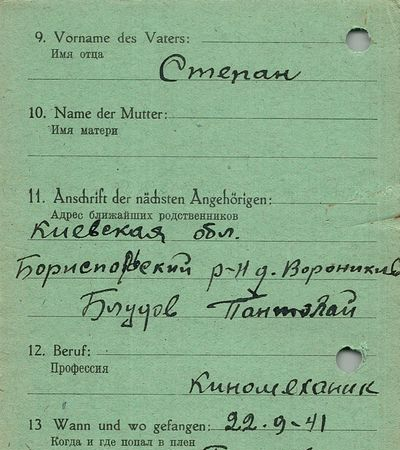 9. Vorname des Vaters:
Имя отца
Степан
10. Name der Mutter:
Имя матери
11. Anschrift der nächsten Angehörigen:
Адрес ближайших родственников
Киевская обл.
Бориспольский р-н д. Вороников
Блудов Пантолай
12. Beruf:
Профессия
Киномеханик
13 Wann und wo gefangen: 22.9-41
Когда и где попал в плен